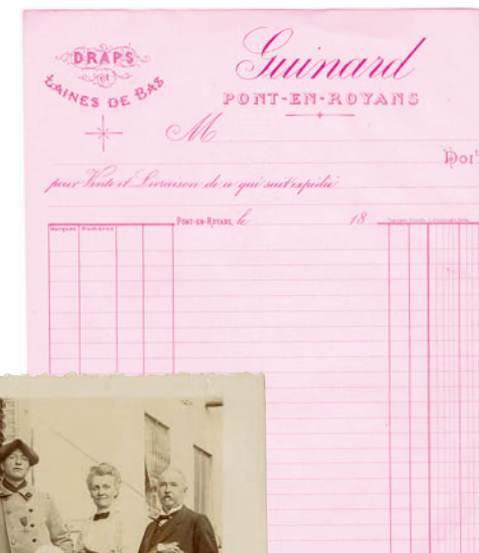 DRAPS
et
LAINES DE BAS
Guinard
PONT-EN-ROYANS
M
Doit
pour Vente et Livraison de ce qui suit expédié
PONT-EN-ROYANS, le 18
Marques Numéros